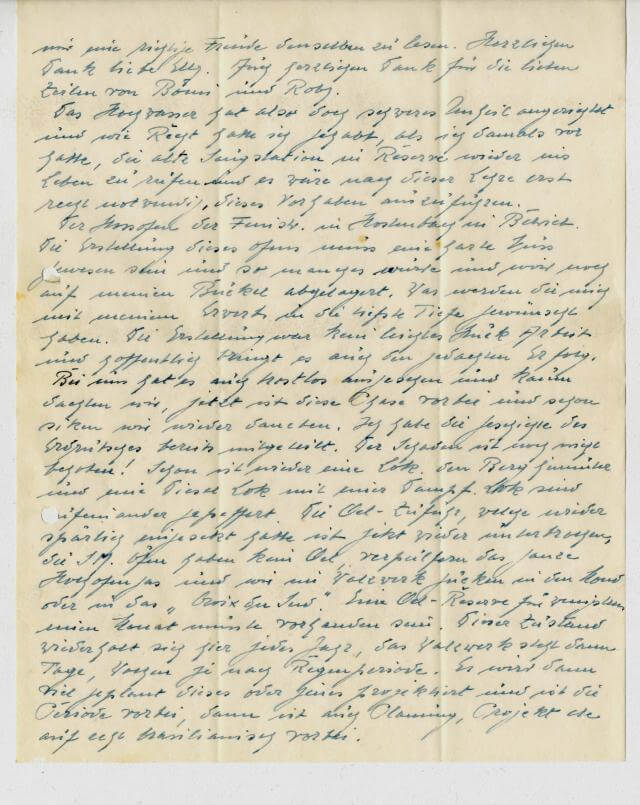 mir eine richtige Freude denselben zu lesen. Herzlichen
Dank liebe Elly. Auch herzlichen Dank für die lieben
Zeilen von Bömi und Roby.
Das Hochwasser hat also doch schweres Unheil angerichtet
und wie Recht hatte ich gehabt, als ich damals vor
hatte, die alte Saugstation in Reserve wieder ins
Leben zu rufen und es wäre nach dieser Lehre erst
recht notwendig, dieses Vorhaben auszuführen.
Der Hochofen der in Betrieb.
Die Erstellung dieses Ofens muss eine harte Nuss
gewesen sein und so manches wurde und wird noch
auf meinen Buckel abgelagert. Was werden die mich
mit meinem in die tiefste Tiefe gewünscht
haben. Die Erstellung war kein leichtes Stück Arbeit
und hoffentlich bringt es auch den gedachten Erfolg.
Bei uns hat es auch trostlos ausgesehen und kaum
dachten wir, jetzt ist diese Chose vorbei und schon
sitzen wir wieder daneben. Ich habe die Geschichte des
Erdrutsches bereits mitgeteilt. Der Schaden ist noch nicht
behoben! Schon ist wieder eine Lok. den Berg hinunter
und eine Diesel Lok mit einer Dampf Lok sind
aufeinander gepfeffert. Die Oel-Zufuhr, welche wieder
spärlich eingesetzt hatte ist jetzt wieder unterbrochen,
die S.M. Öfen haben kein Oel, verpulfern das ganze
Hochofengas und wir im Walzwerk gucken in den Mond
oder in das „Croix du Sud". Eine Oel-Reserve für wenigstens
einen Monat müsste vorhanden sein. Dieser Zustand
wiederholt sich hier jedes Jahr, das Walzwerk steht dann
Tage, Wochen je nach Regenperiode. Es wird dann
viel geplant dieses oder jenes projektiert und ist die
Periode vorbei, dann ist auch Planung, Projekt etc
auf echt brasilianisch vorbei.